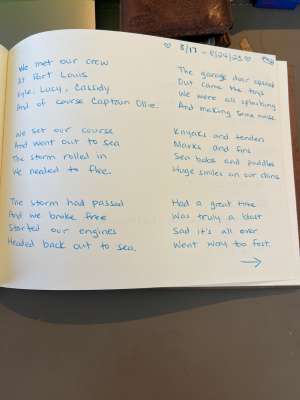 ♡ 8/17 - 8/24/23 ♡
We met our crew
At Port Louis
Kyle, Lucy, Cassidy
And of course Captain Ollie.
We set our course
And went out to sea
The storm rolled in
We needed to flee.
The storm had passed
And we broke free
Started our engines
Headed back out to sea.
The garage door opened
Out came the toys
We were all splashing
And making some noise.
Kayaks and tender
Masks and fins
Sea bobs and paddles
Huge smiles on our chins
Had a great time
Was truly a blast
Sad it's all over
Went way too fast.
→